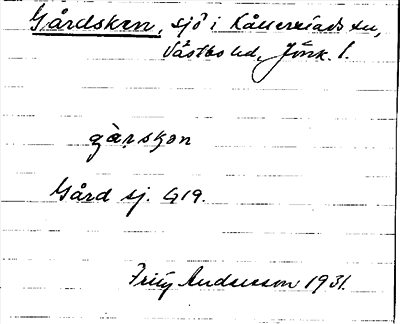 Gårdsken, sjö i Kållerstads sn,
Västbo hd, Jönk. l.
gàrskon
Gård sj. G19.
Fritz Andersson 1931.